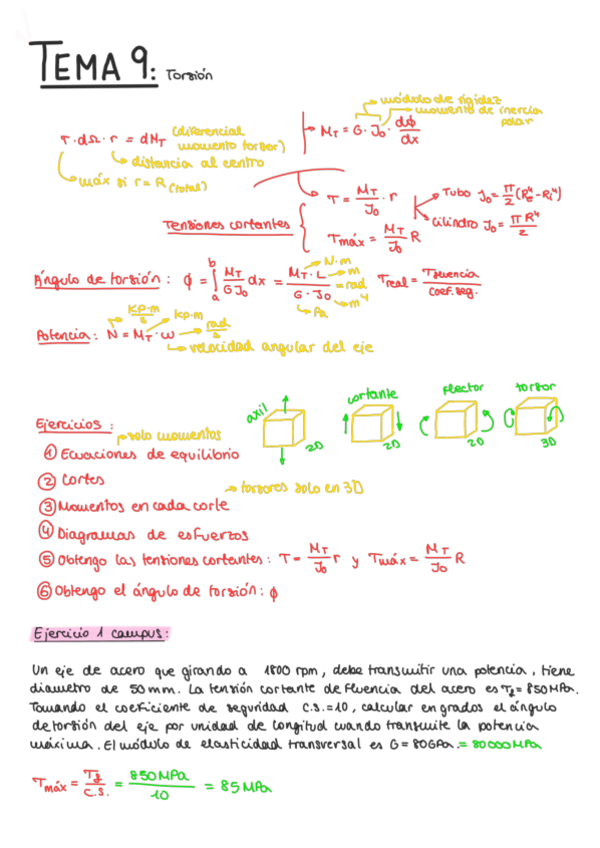 TEMA 9: Torsión
módulo de rigidez
momento de inercia polar
τ · dΩ · r = dM_T (diferencial momento torsor)
M_T = G · J₀ · dϕ/dx
distancia al centro
máx si r = R (total)
Tensiones cortantes
τ = M_T/J₀ · r
Tubo J₀ = π/2 (Re⁴ - Ri⁴)
Cilindro J₀ = πR⁴/2
τmáx = M_T/J₀ R
Ángulo de torsión: ϕ = ∫ₐᵇ M_T/GJ₀ dx = M_T · L/G · J₀ = rad
N·m
m
Pa
m⁴
τreal = τfluencia/coef. seg.
Potencia: N = M_T · ω
kp·m/s
kp·m
rad/s
velocidad angular del eje
axil 2D
cortante 2D
flector 2D
torsor 3D
Ejercicios:
solo momentos
① Ecuaciones de equilibrio
② Cortes
torsores solo en 3D
③ Momentos en cada corte
④ Diagramas de esfuerzos
⑤ Obtengo las tensiones cortantes: τ = M_T/J₀ r y τmáx = M_T/J₀ R
⑥ Obtengo el ángulo de torsión: ϕ
Ejercicio 1 campus:
Un eje de acero que girando a 1800 rpm, debe transmitir una potencia, tiene
diametro de 50mm. La tensión cortante de fluencia del acero es τf = 850MPa.
Tomando el coeficiente de seguridad c.s.=10, calcular en grados el ángulo
de torsión del eje por unidad de longitud cuando transmite la potencia
máxima. El módulo de elasticidad transversal es G = 80GPa. = 80000MPa
τmáx = τf/c.s. = 850MPa/10 = 85MPa